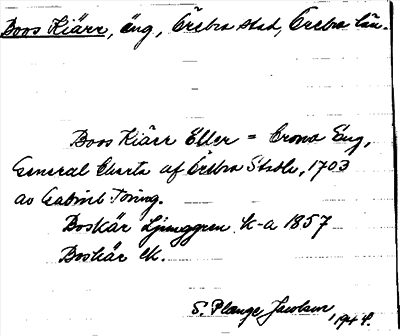 Boos Kiärr, äng, Örebro stad, Örebro län.
Boos Kiärr Eller = Crono Eng,
General Charta af Örebro Stadh, 1703
av Gabriel Toring.
Boskär Ljunggren k-a 1857
Boskär ek.
S. Plange Jacobson, 1944.